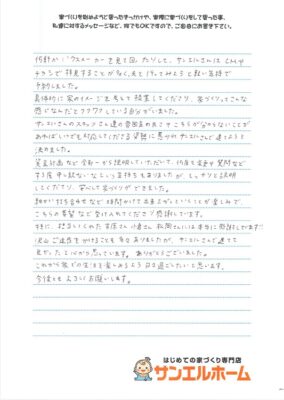 家づくりを始めようと思ったきっかけや、実際に家づくりをして思った事、
私達に対するメッセージなど、何でもOKですので、ご自由にお書き下さい。
何軒かハウスメーカーを見て回ったりして、サンエルさんは CMや
チラシで拝見することが多く、一度行ってみようと軽い気持で
予約しました。
具体的に家のイメージを考えて提案してくださり、家づくりってこんな
感じなんだとワクワクしている自分がいました。
サンエルさんのスタッフさん達の雰囲気の良さやこちらが分からないことが
あればいつでも対応してくださる姿勢に惹かれサンエルさんで建てようと
決めました。
資金計画など全部一から説明していただいて、何度も変更や質問など
する度申し訳ないなという気持ちもありましたが、しっかりと説明
してくださり、安心して家づくりができました。
細かい打ち合わせなど 時間がけて
こちらの希望など受け入れてくださり感謝しています。
特に、担当してくれた 小倉さん 松岡さんには本当に感謝しています!!
沢山ご迷惑をかけることも多々ありましたが、サンエルさんで建てて
良かったと心から思っています。ありがとうございました。
これから家での生活を楽しめるよう日々過ごしたいと思います。
今後ともよろしくお願いします。
はじめての家づくり専門店
サンエルホーム